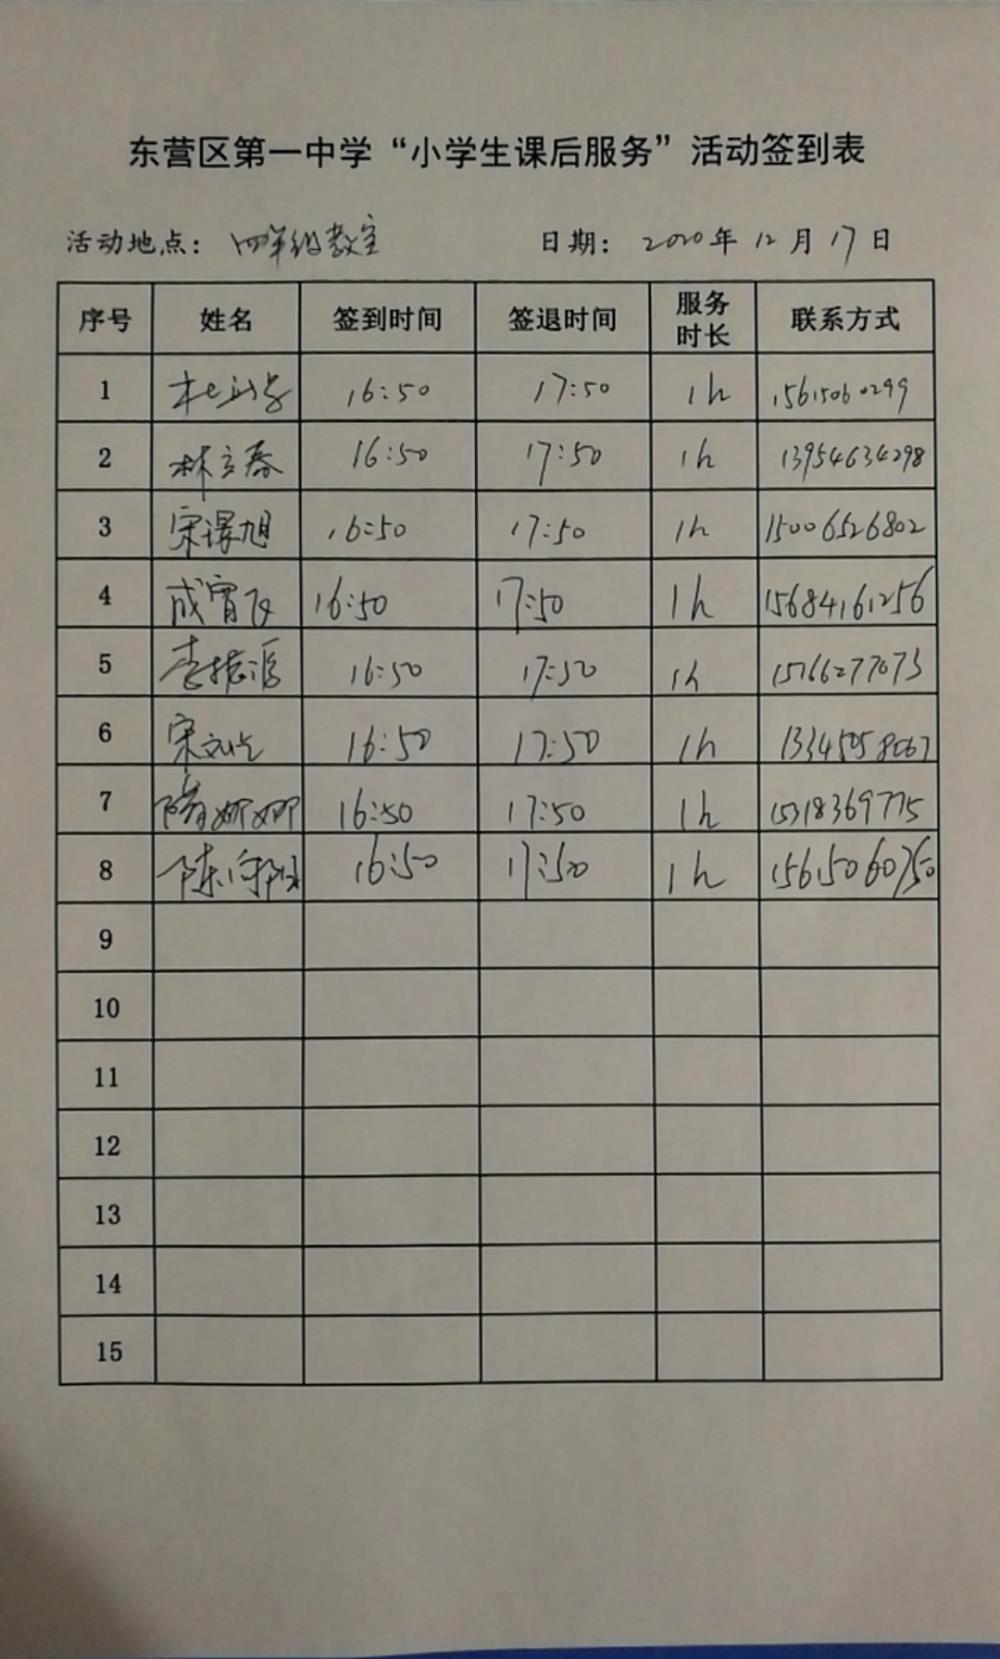 东营区第一中学“小学生课后服务”活动签到表
活动地点：四年级教室 日期：2020年12月17日
序号 姓名 签到时间 签退时间 服务时长 联系方式
1 16:50 17:50 1h 15615060299
2 林立春 16:50 17:50 1h 13954634298
3 16:50 17:50 1h 15006526802
4 成宵飞 16:50 17:50 1h 15684161256
5 李振滨 16:50 17:50 1h 15166277073
6 16:50 17:50 1h
7 隋娜娜 16:50 17:50 1h 15318369775
8 16:50 17:50 1h 15615060750
9
10
11
12
13
14
15